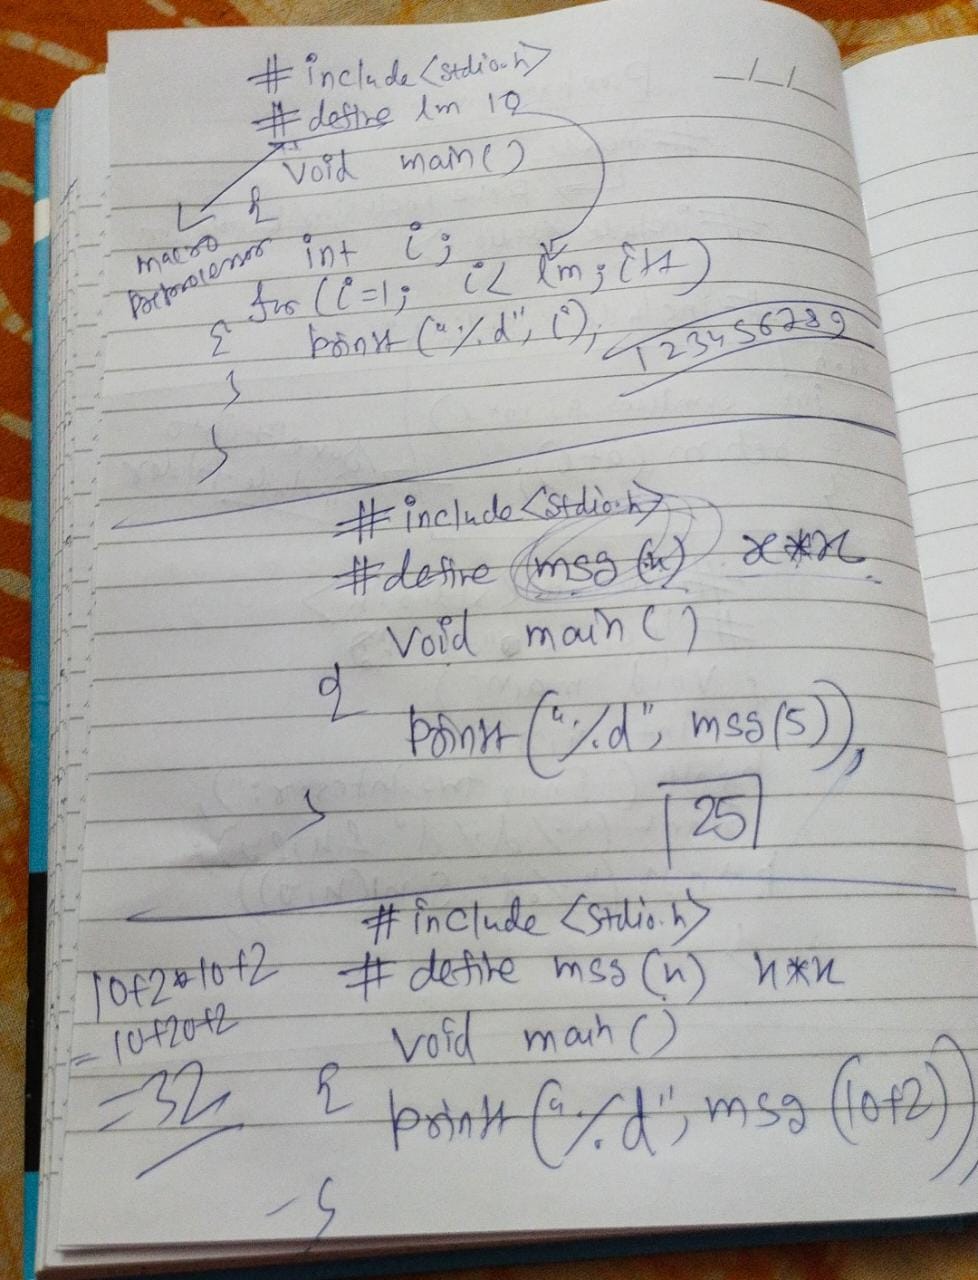 #include<stdio.h>
#define lm 10
void main()
{
macro
Preprocessor
int i;
for (i=1; i< lm; i++)
{
printf("%d", i);
123456789
}
}
#include<stdio.h>
#define msg(x) x*x
void main()
{
printf("%d", msg(5));
25
}
#include <stdio.h>
#define msg(x) x*x
void main()
{
printf("%d", msg(10+2))
}
10+2*10+2
= 10+20+2
=32